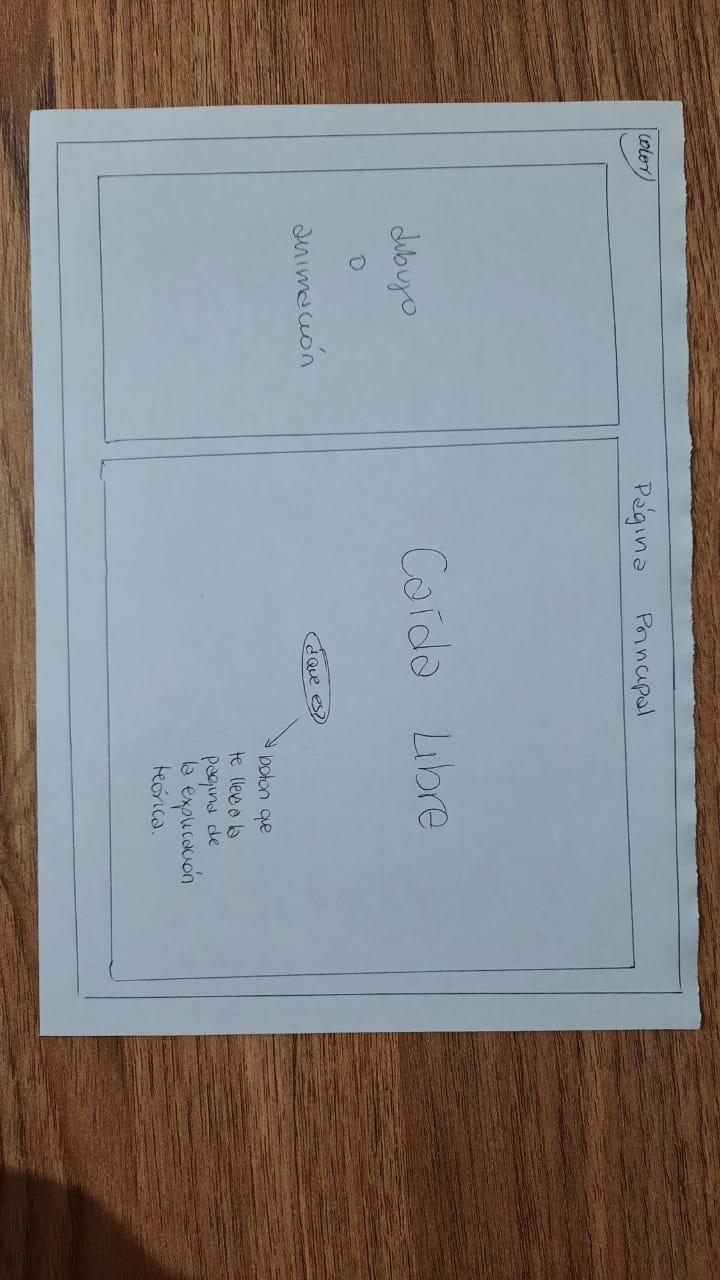 Color
Página Principal
dibujo
o
animación
Caída Libre
¿Que es?
boton que
te lleva a la
pagina de
la explicación
teórica.